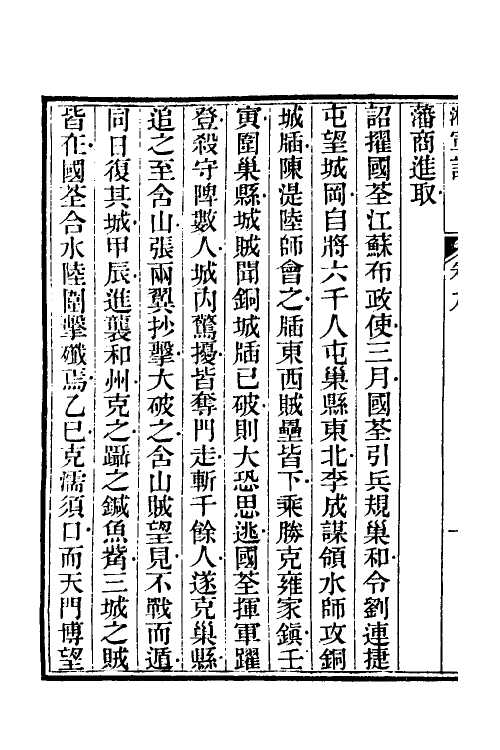 湘軍記
卷九
一
藩商進取
詔擢國荃江蘇布政使三月國荃引兵規巢和令劉連捷
屯望城岡自將六千人屯巢縣東北李成謀領水師攻銅
城牐陳湜陸師會之牐東西賊壘皆下乘勝克雍家鎮壬
寅圍巢縣城賊聞銅城牐已破則大恐思逃國荃揮軍躍
登殺守陴數人城內驚擾皆奪門走斬千餘人遂克巢縣
追之至含山張兩翼抄擊大破之含山賊望見不戰而遁
同日復其城甲辰進襲和州克之躡之鍼魚觜三城之賊
皆在國荃合水陸圍擊殲焉乙巳克濡須口而天門博望